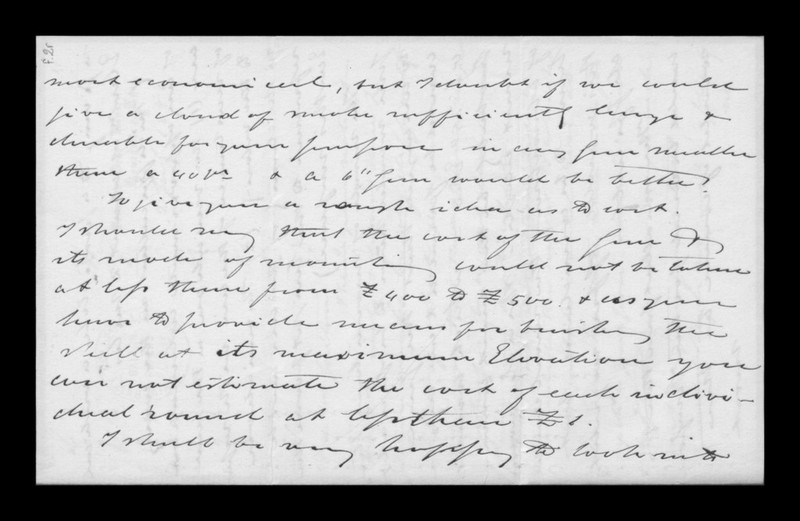 F.25
most economical, but I doubt if we could
give a cloud of smoke sufficiently large &
durable for your purpose in any gun smaller
than a 40 pr & a 6" gun would be better.
To give you a rough idea as to cost.
I should say that the cost of the gun &
its mode of mounting could not be taken
at less than from £400 to £500 & as you
have to provide means for bursting the
shell at its maximum Elevation you
can not estimate the cost of each indivi-
dual round at less than £1.
I shall be very happy to look into